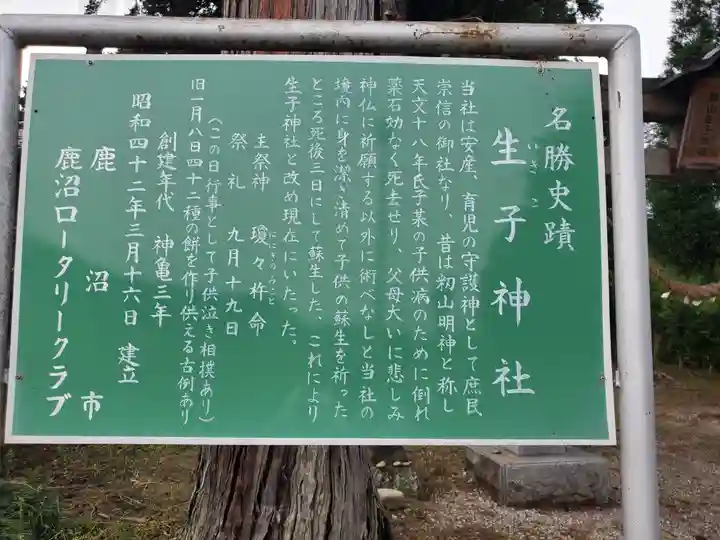 名勝史蹟
生子神社
いきこ
当社は安産、育児の守護神として庶民
崇信の御社なり、昔は籾山明神と称し
天文十八年氏子某の子供病のために倒れ
薬石効なく死去せり、父母大いに悲しみ
神仏に祈願する以外に術べなしと当社の
境内に身を潔き清めて子供の蘇生を祈った
ところ死後三日にして蘇生した、これにより
生子神社と改め現在にいたった。
主祭神 瓊々杵命
ににぎのみこと
祭礼 九月十九日
(この日行事として子供泣き相撲あり)
旧一月八日四十二種の餅を作り供える古例あり
創建年代 神亀三年
昭和四十二年三月十六日 建立
鹿沼市
鹿沼ロータリークラブ